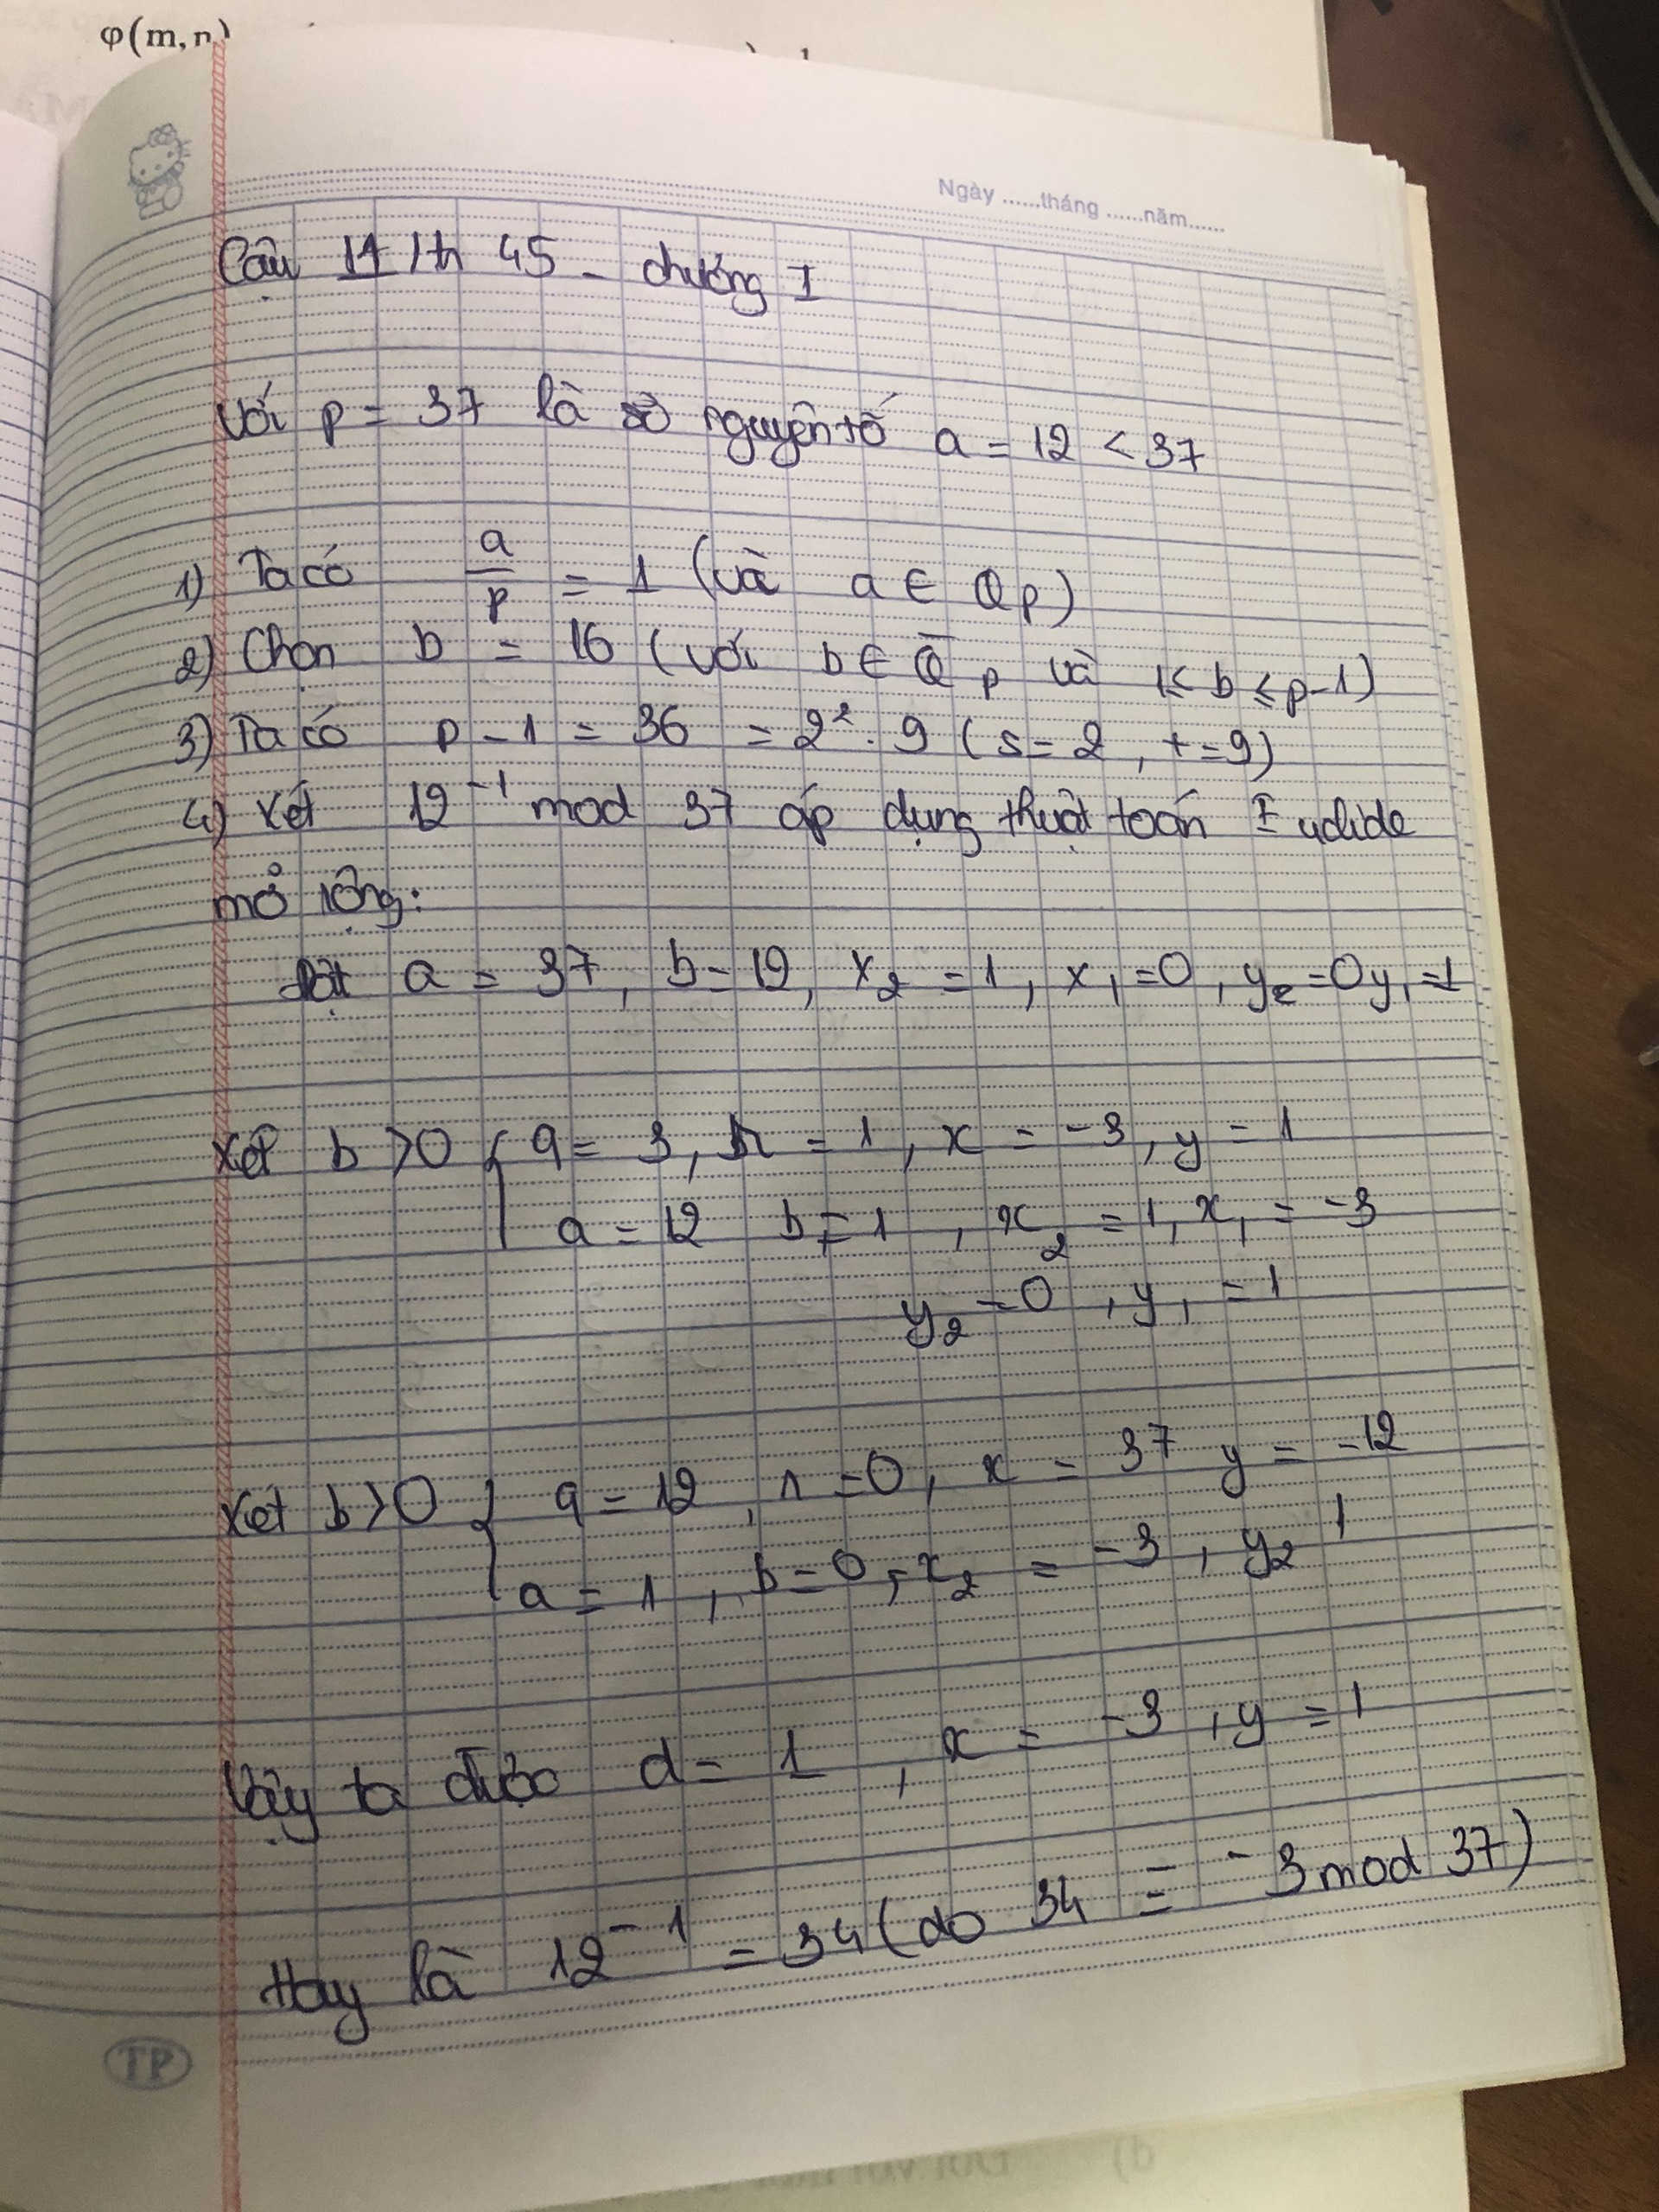 φ(m,n)
Ngày ......tháng ......năm......
Câu 14 / tr 45 - chương I
Với p = 37 là số nguyên tố a = 12 < 37
1) Ta có a/p = 1 (và a ∈ Qp)
2) Chọn b = 16 (với b ∈ Q̅p và 1≤ b ≤ p-1)
3) Ta có p - 1 = 36 = 2² . 9 (s = 2 , t = 9)
4) Xét 12⁻¹ mod 37 áp dụng thuật toán Euclide
mở rộng:
Đặt a = 37, b = 12, x₂ = 1, x₁ = 0, y₂ = 0 y₁ = 1
Xét b > 0 { q = 3, r = 1, x = -3, y = 1
a = 12 b = 1 , x₂ = 1, x₁ = -3
y₂ = 0 , y₁ = 1
Xét b > 0 { q = 12 , r = 0, x = 37 y = -12
a = 1 , b = 0, x₂ = -3, y₂ 1
Vậy ta được d = 1 , x = -3 , y = 1
Hay là 12⁻¹ = 34 (do 34 = -3 mod 37)
TP